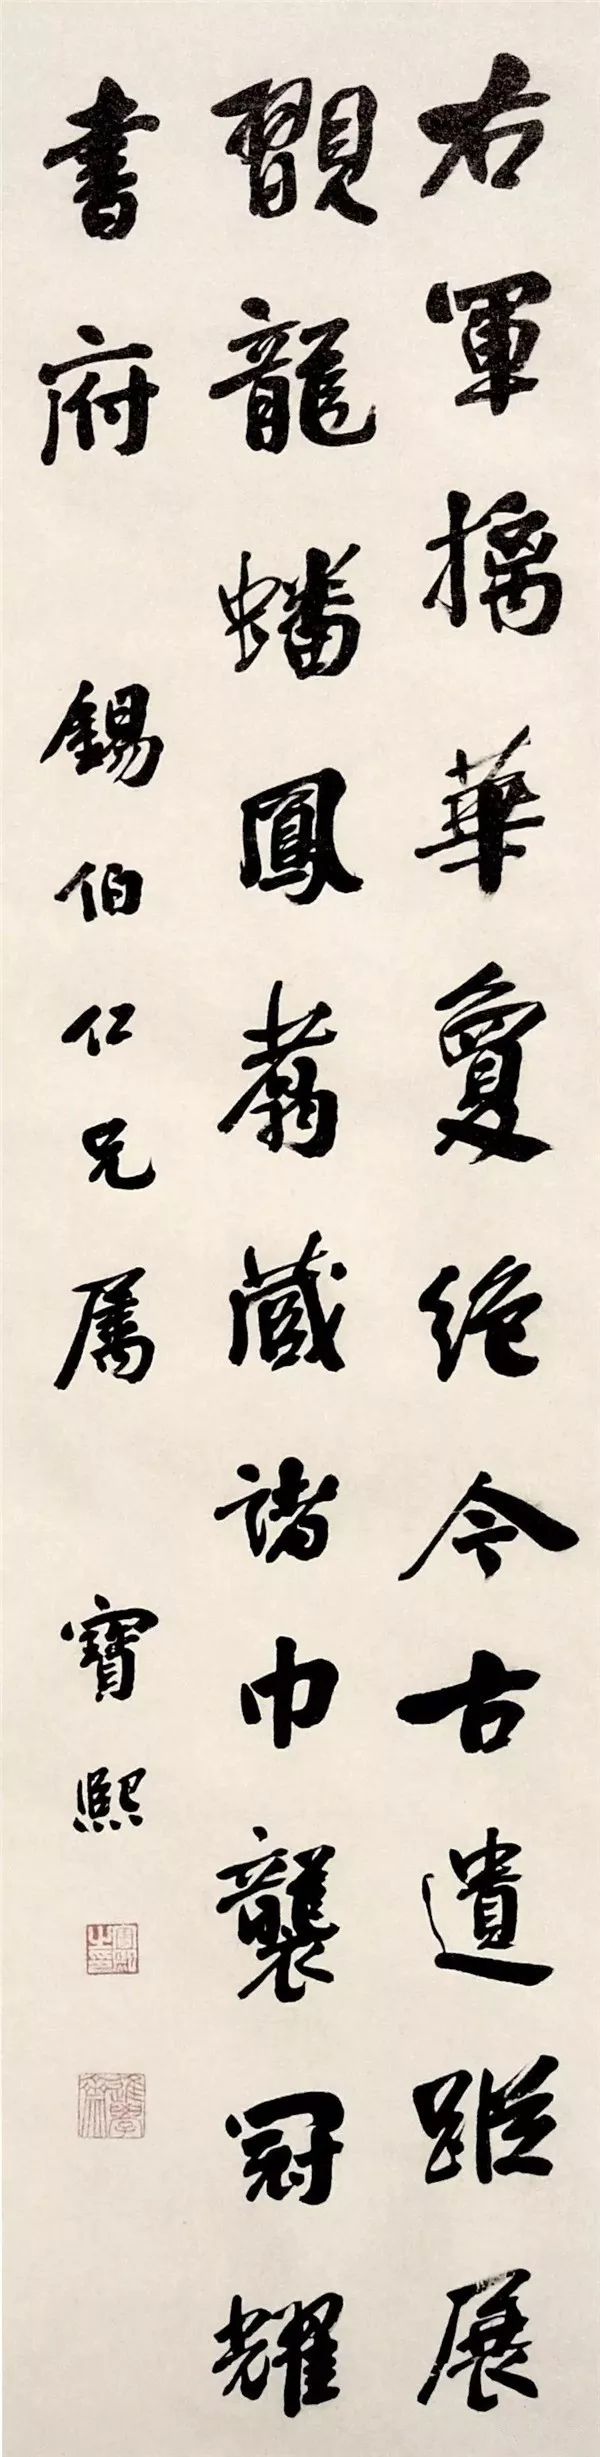 右軍摛華夐絕今古遺蹤展
翫龍蟠鳳翥藏諸巾襲冠耀
書府
錫伯仁兄屬
寶熙
寶熙之印